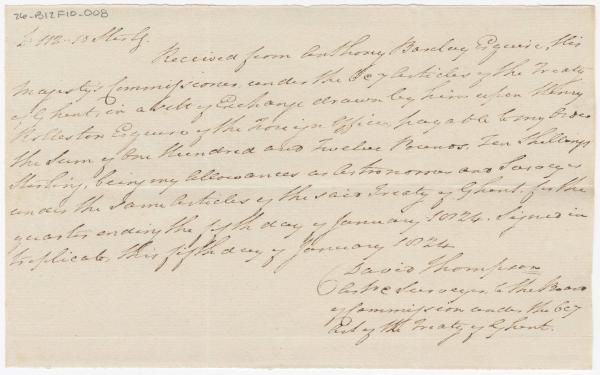 26-B12F10-008
£ 112-10 Sterlg.
Received from Anthony Barclay Esquire His
Majesty's Commissioner under the 6 & 7 Articles of the Treaty
of Ghent, in a Sett of Exchange drawn by him upon Henry
Rolleston Esquire of the Foreign Office, payable to my order
the Sum of One Hundred and Twelve Pounds, Ten Shillings
Sterling, being my allowances as Astronomer and Surveyor
under the Same Articles of the said Treaty of Ghent, for the
quarter ending the fifth day of January 1824. Signed in
triplicate, this fifth day of January 1824
David Thompson
Surveyor to the Board
of Commission under the 6 & 7
Art of the Treaty of Ghent.